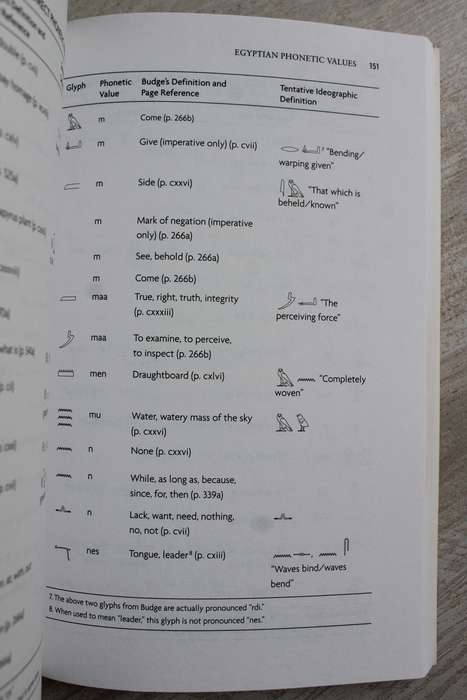 EGYPTIAN PHONETIC VALUES 151
Glyph Phonetic Value Budge's Definition and Page Reference Tentative Ideographic Definition
m Come (p. 266b)
m Give (imperative only) (p. cvii) "Bending/
warping given"
m Side (p. cxxvi) "That which is
beheld/known"
m Mark of negation (imperative
only) (p. 266a)
m See, behold (p. 266a)
m Come (p. 266b)
maa True, right, truth, integrity "The
(p. cxxxiii) perceiving force"
maa To examine, to perceive,
to inspect (p. 266b)
men Draughtboard (p. cxlvi) "Completely
woven"
mu Water, watery mass of the sky
(p. cxxvi)
n None (p. cxxvi)
n While, as long as, because,
since, for, then (p. 339a)
n Lack, want, need, nothing,
no, not (p. cvii)
nes Tongue, leader⁸ (p. cxiii)
"Waves bind/waves
bend"
7. The above two glyphs from Budge are actually pronounced "rdi."
8. When used to mean "leader," this glyph is not pronounced "nes."